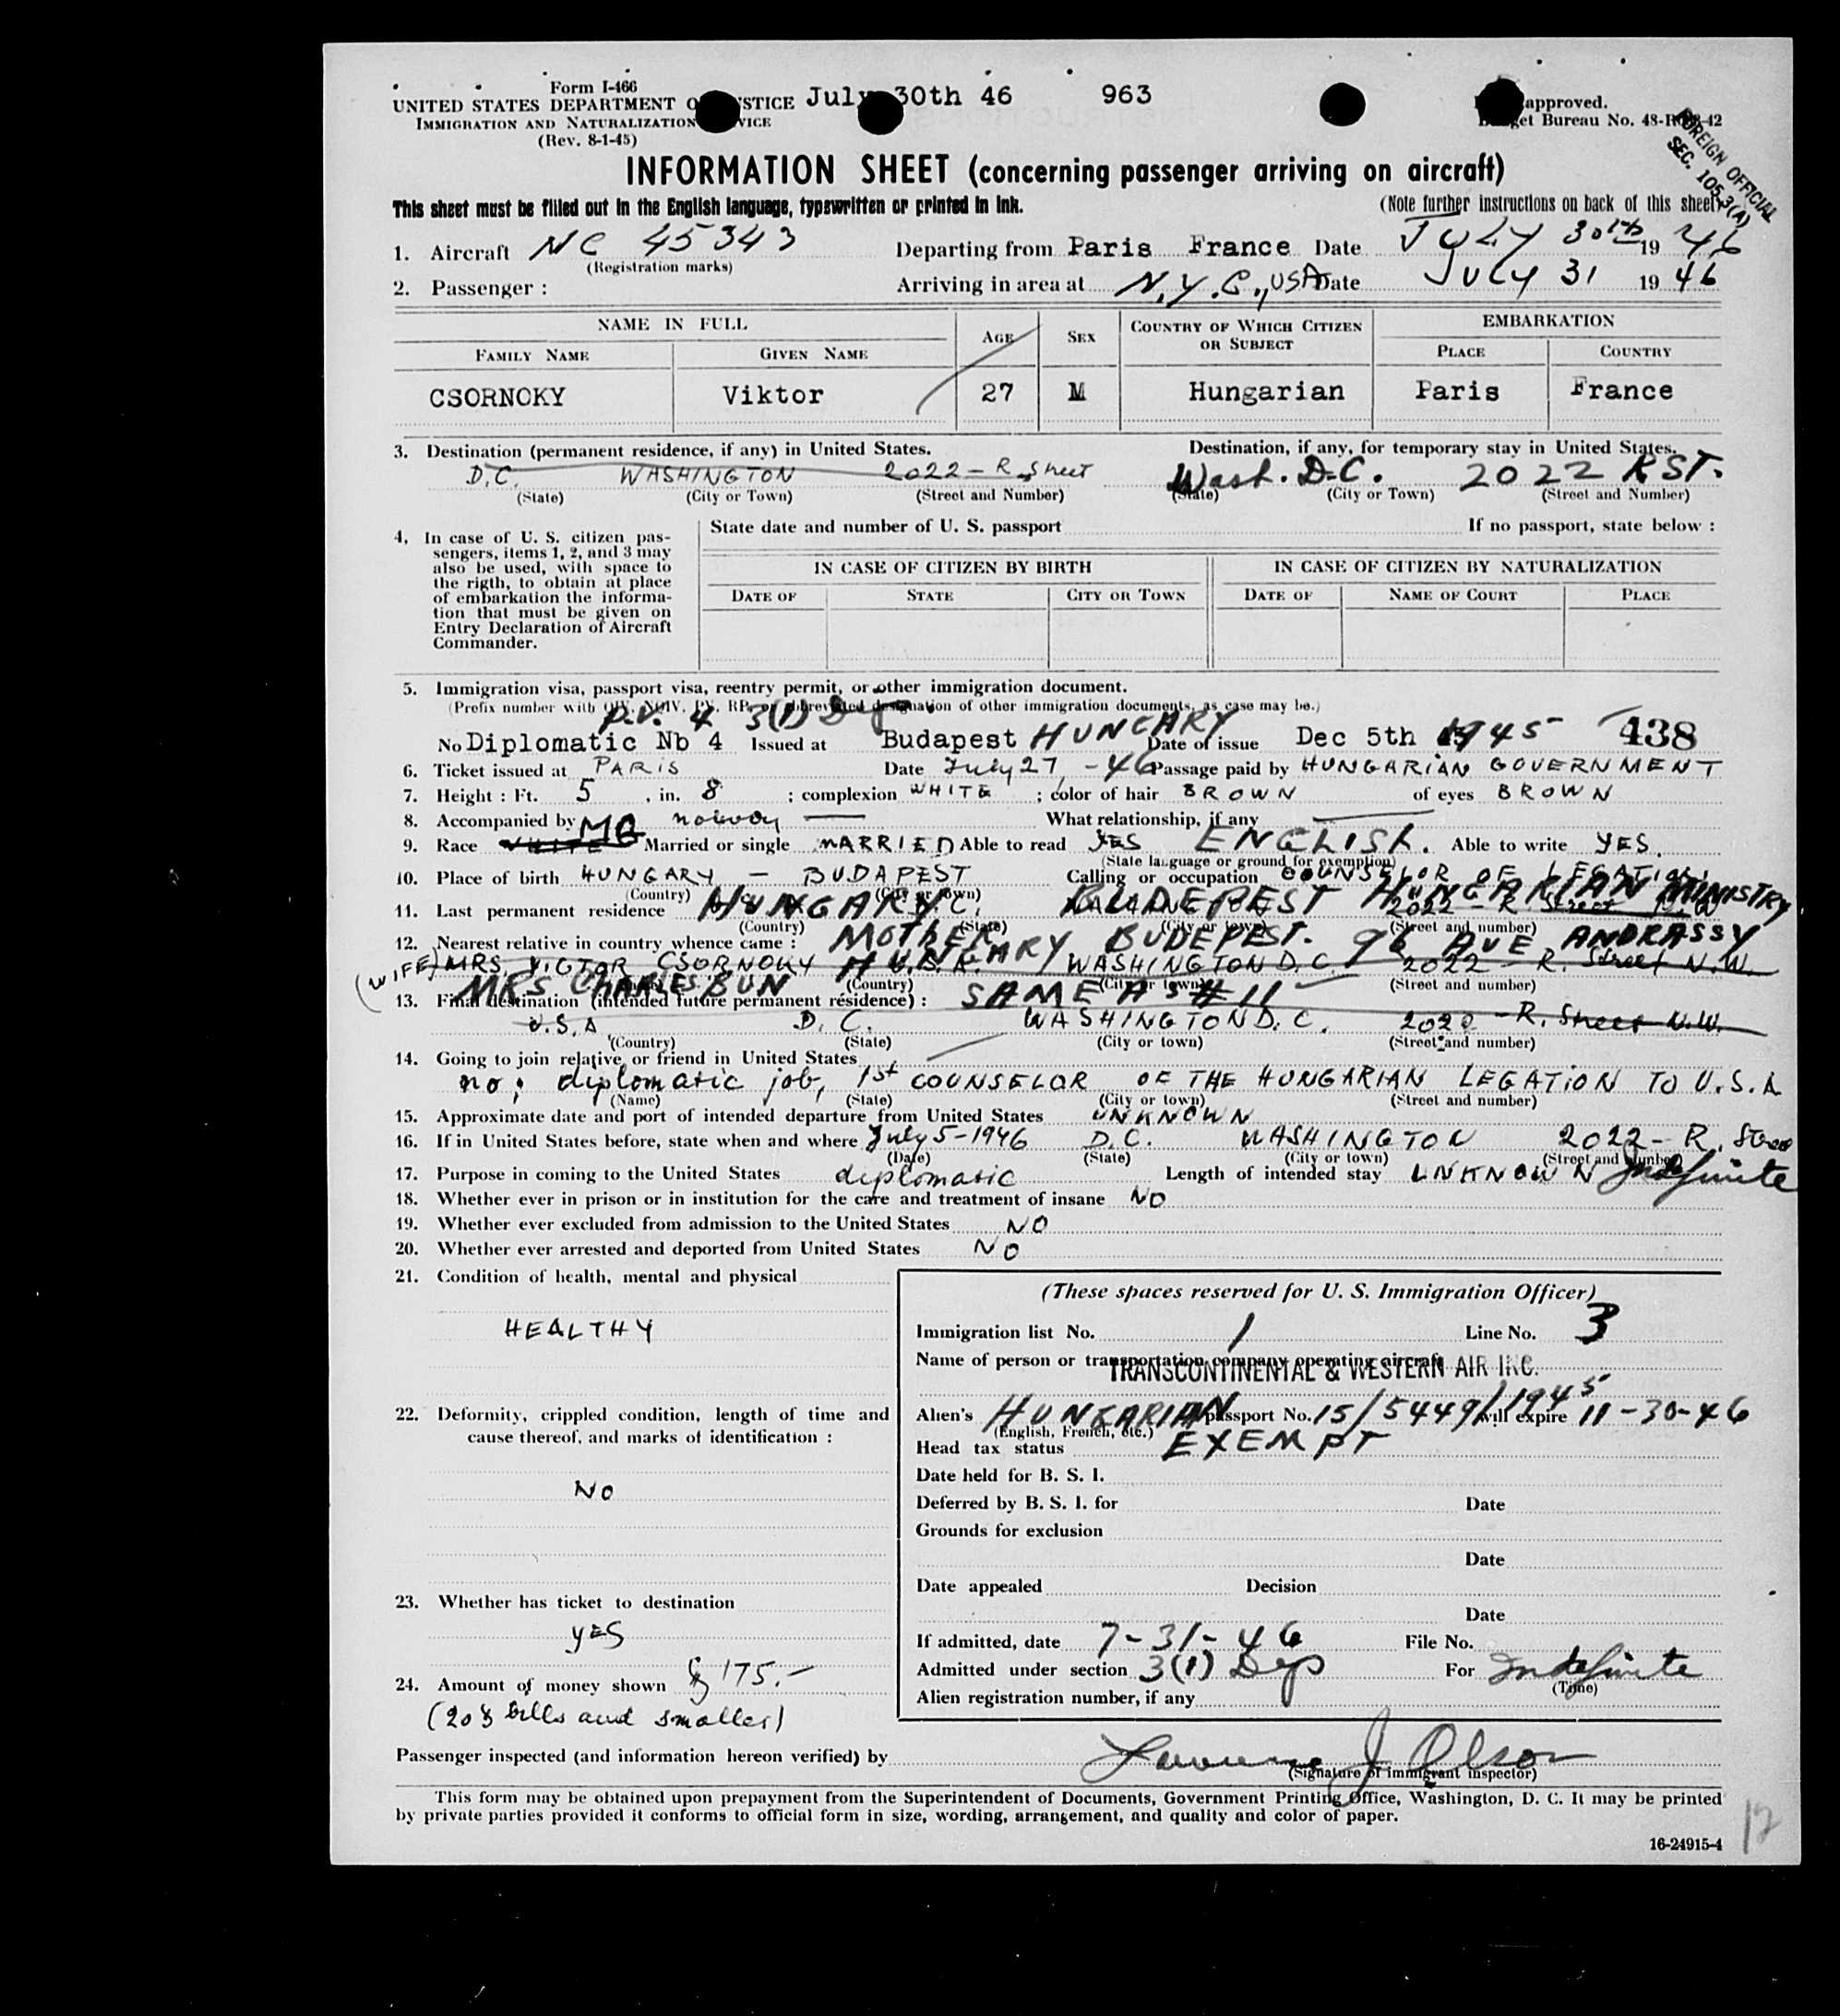 Form I-466
UNITED STATES DEPARTMENT O STICE July 30th 46 963 approved.
IMMIGRATION AND NATURALIZATION VICE et Bureau No. 48-R
(Rev. 8-1-45)
FOREIGN OFFICIAL
SEC. 105.3(A)
INFORMATION SHEET (concerning passenger arriving on aircraft)
This sheet must be filled out in the English language, typewritten or printed in ink. (Note further instructions on back of this sheet)
1. Aircraft NC 45343 Departing from Paris France Date JULY 30th 19 46
(Registration marks)
2. Passenger : Arriving in area at N.Y.C., USA Date JULY 31 19 46
NAME IN FULL AGE SEX COUNTRY OF WHICH CITIZEN OR SUBJECT EMBARKATION
FAMILY NAME GIVEN NAME PLACE COUNTRY
CSORNOKY Viktor 27 M Hungarian Paris France
3. Destination (permanent residence, if any) in United States. Destination, if any, for temporary stay in United States.
D.C. WASHINGTON 2022 - R. Street Wash. D.C. 2022 R ST.
(State) (City or Town) (Street and Number) (State) (City or Town) (Street and Number)
4. In case of U. S. citizen pas- State date and number of U. S. passport If no passport, state below :
sengers, items 1, 2, and 3 may
also be used, with space to IN CASE OF CITIZEN BY BIRTH IN CASE OF CITIZEN BY NATURALIZATION
the rigth, to obtain at place
of embarkation the informa- DATE OF STATE CITY OR TOWN DATE OF NAME OF COURT PLACE
tion that must be given on
Entry Declaration of Aircraft
Commander.
5. Immigration visa, passport visa, reentry permit, or other immigration document.
(Prefix number with QIV, NQIV, PV, RP, or abbreviated designation of other immigration documents, as case may be.)
P.V. 4 3(1)
No Diplomatic Nb 4 Issued at Budapest HUNGARY Date of issue Dec 5th 1945 438
6. Ticket issued at PARIS Date July 27, -46 Passage paid by HUNGARIAN GOVERNMENT
7. Height : Ft. 5 , in. 8 ; complexion WHITE ; color of hair BROWN of eyes BROWN
8. Accompanied by nobody What relationship, if any
9. Race WHITE MG Married or single MARRIED Able to read YES ENGLISH. Able to write YES.
(State language or ground for exemption)
10. Place of birth HUNGARY - BUDAPEST Calling or occupation COUNSELOR OF LEGATION
(Country) (City or town) HUNGARIAN MINISTRY
11. Last permanent residence HUNGARY BUDEPEST 2022 - R. Street N.W.
(Country) (State) (City or town) (Street and number)
12. Nearest relative in country whence came : MOTHER HUNGARY BUDEPEST. 96 AVE ANDRASSY
(WIFE) MRS. VICTOR CSORNOKY U.S.A. WASHINGTON D.C. 2022 - R. Street N.W.
MRS CHARLES BUN (Country) (City or town) (Street and number)
13. Final destination (intended future permanent résidence) : SAME AS #11
U.S.A. D.C. WASHINGTON D.C. 2022 - R. Street N.W.
(Country) (State) (City or town) (Street and number)
14. Going to join relative or friend in United States
no; diplomatic job, 1st COUNSELOR OF THE HUNGARIAN LEGATION TO U.S.A
(Name) (State) (City or town) (Street and number)
15. Approximate date and port of intended departure from United States UNKNOWN
16. If in United States before, state when and where July 5-1946 D.C. WASHINGTON 2022 - R. Street
(Date) (State) (City or town) (Street and number)
17. Purpose in coming to the United States diplomatic Length of intended stay UNKNOWN Indefinite
18. Whether ever in prison or in institution for the care and treatment of insane NO
19. Whether ever excluded from admission to the United States NO
20. Whether ever arrested and deported from United States NO
21. Condition of health, mental and physical
HEALTHY
22. Deformity, crippled condition, length of time and
cause thereof, and marks of identification :
NO
23. Whether has ticket to destination
YES
24. Amount of money shown $ 175.-
(20$ bills and smaller)
(These spaces reserved for U. S. Immigration Officer)
Immigration list No. 1 Line No. 3
Name of person or transportation company operating aircraft
TRANSCONTINENTAL & WESTERN AIR INC.
Alien's HUNGARIAN passport No. 15/5449/1945 will expire 11-30-46
(English, French, etc.)
Head tax status EXEMPT
Date held for B. S. I.
Deferred by B. S. I. for Date
Grounds for exclusion
Date
Date appealed Decision
Date
If admitted, date 7-31-46 File No.
Admitted under section 3(1) Dep For Indefinite
(Time)
Alien registration number, if any
Passenger inspected (and information hereon verified) by Lawrence J. Olson
(Signature of immigrant inspector)
This form may be obtained upon prepayment from the Superintendent of Documents, Government Printing Office, Washington, D. C. It may be printed
by private parties provided it conforms to official form in size, wording, arrangement, and quality and color of paper.
16-24915-4
12